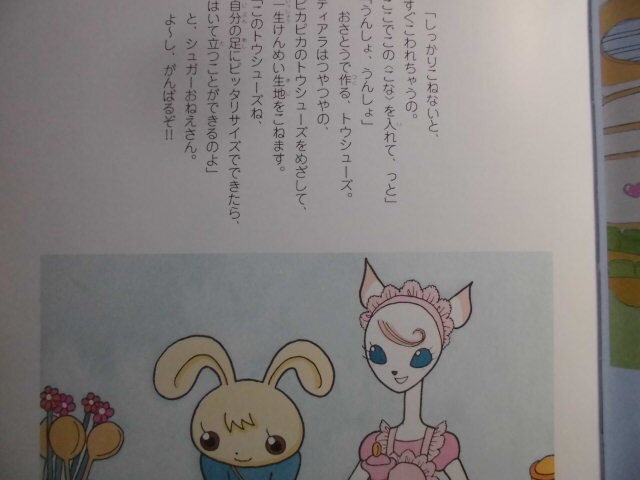 「しっかりこねないと、
すぐこわれちゃうの。
ここでこの〈こな〉を入れて、っと」
「うんしょ、うんしょ」
おさとうで作る、トウシューズ。
ティアラはつやつやの、
ピカピカのトウシューズをめざして、
一生けんめい生地をこねます。
「このトウシューズね、
自分の足にピッタリサイズでできたら、
はいて立つことができるのよ」
と、シュガーおねえさん。
よ〜し、がんばるぞ!!